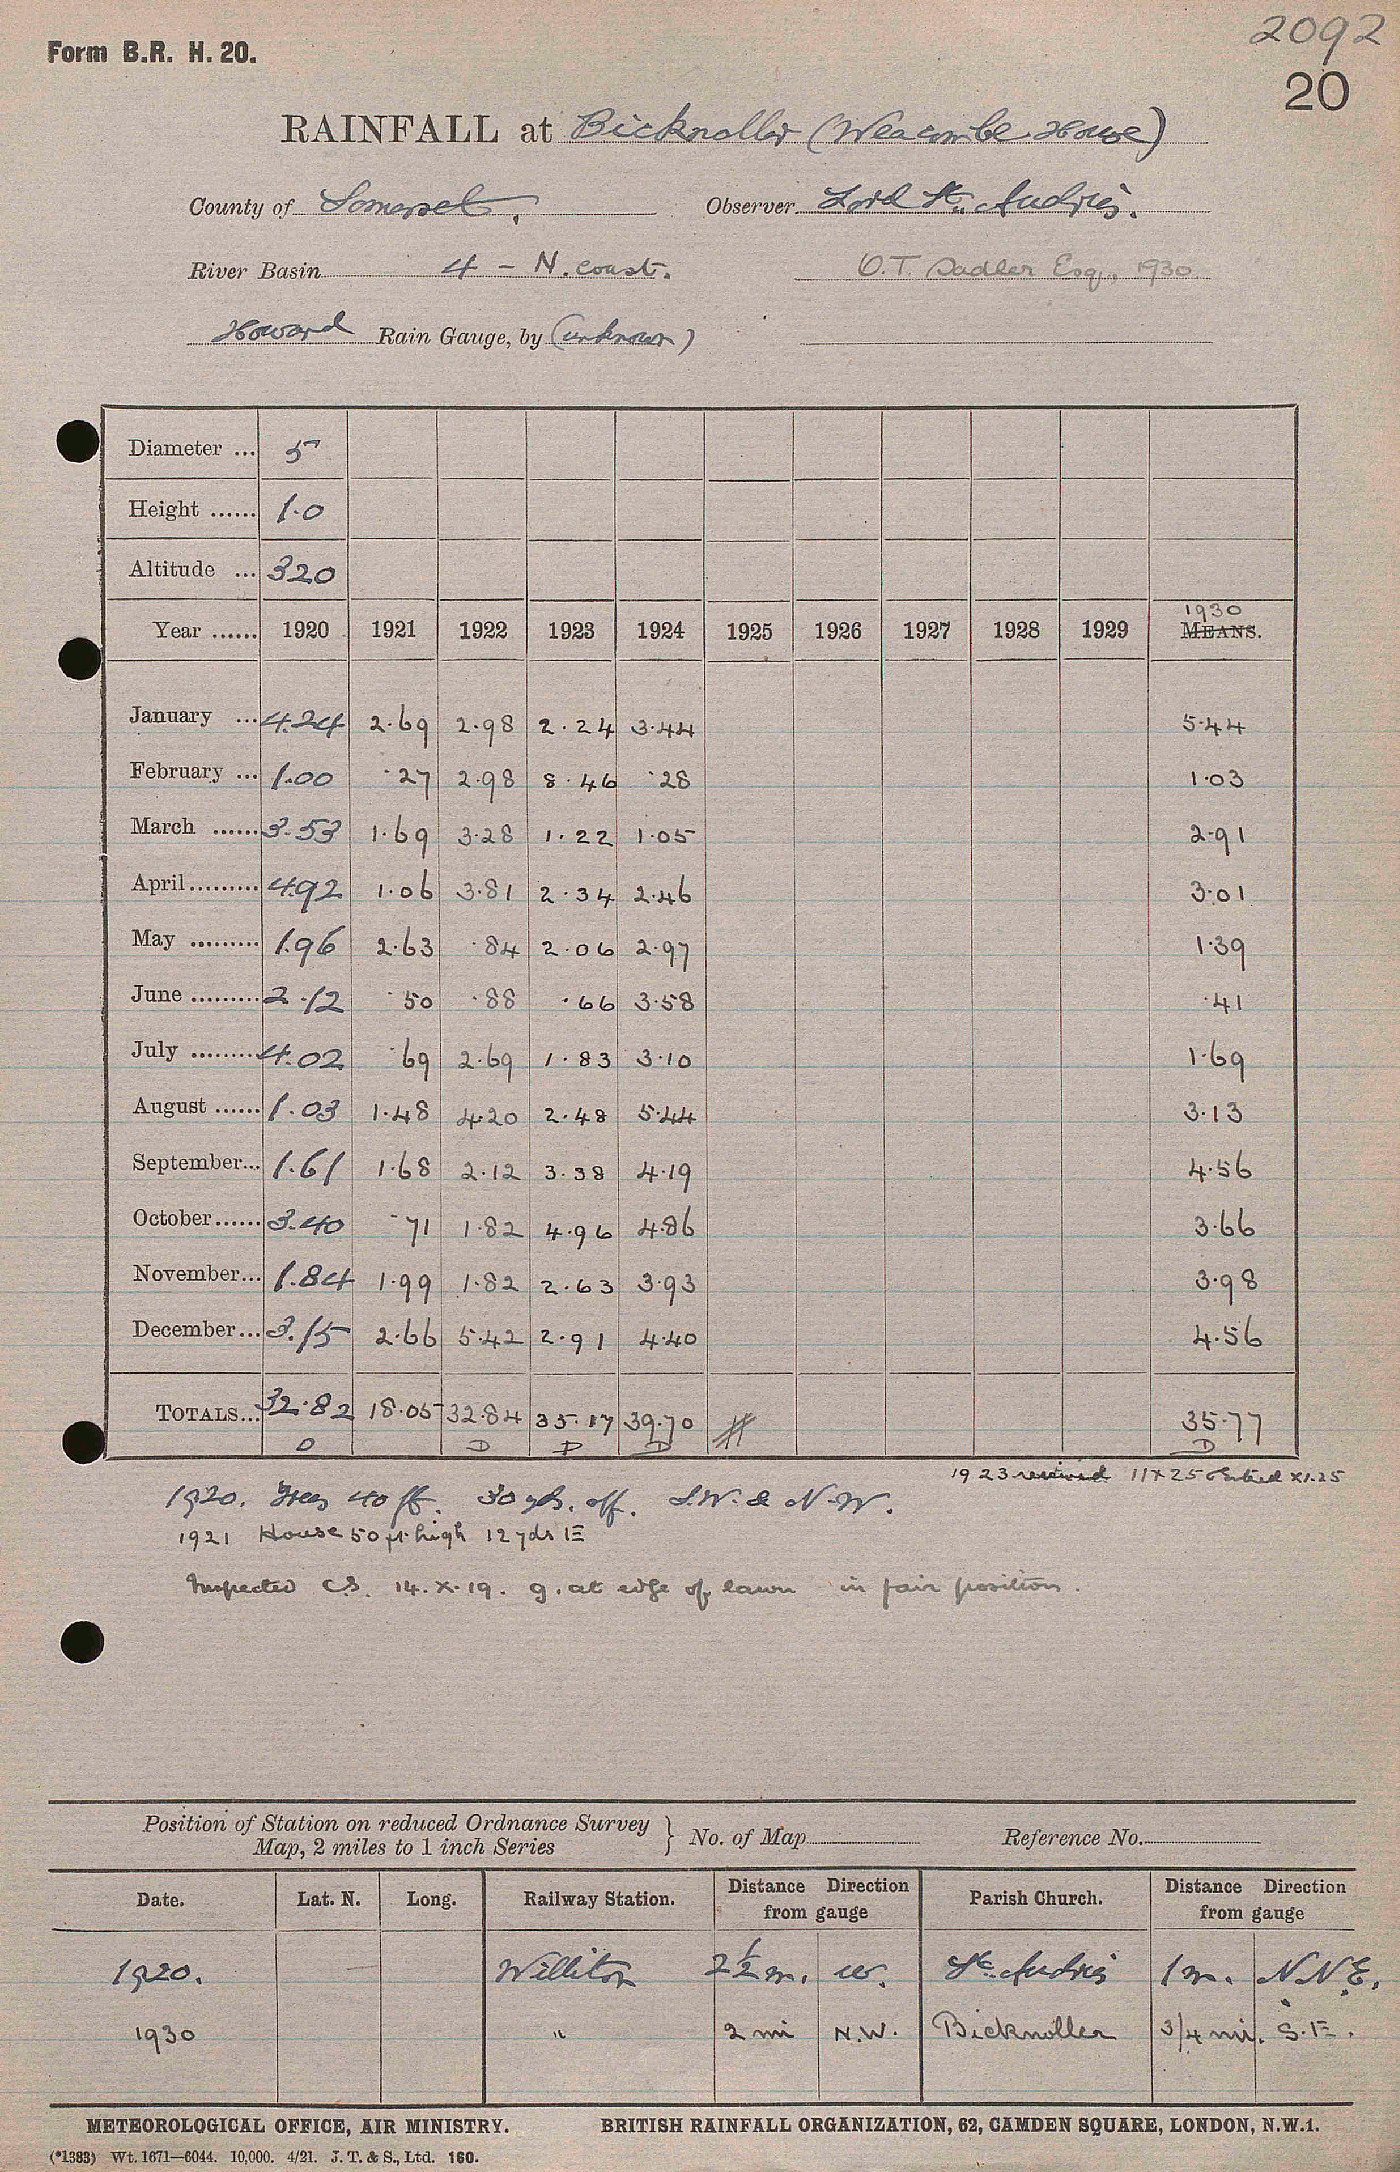 2092
Form B.R. H. 20.
20
RAINFALL at Bicknoller (Weacombe House)
County of Somerset. Observer Lord St. Audries.
River Basin 4 - N. coast. O.T. Sadler Esq., 1930
Howard Rain Gauge, by (unknown)
Diameter ... 5
Height ...... 1.0
Altitude ... 320
1930
Year ...... 1920 1921 1922 1923 1924 1925 1926 1927 1928 1929 MEANS.
January ... 4.24 2.69 2.98 2.24 3.44 5.44
February ... 1.00 .27 2.98 8.46 .28 1.03
March ...... 3.53 1.69 3.28 1.22 1.05 2.91
April ......... 4.92 1.06 3.81 2.34 2.46 3.01
May ......... 1.96 2.63 .84 2.06 2.97 1.39
June ......... 2.12 .50 .88 .66 3.58 .41
July ......... 4.02 .69 2.69 1.83 3.10 1.69
August ...... 1.03 1.48 4.20 2.48 5.44 3.13
September... 1.61 1.68 2.12 3.38 4.19 4.56
October ...... 3.40 .71 1.82 4.96 4.86 3.66
November... 1.84 1.99 1.82 2.63 3.93 3.98
December... 3.15 2.66 5.42 2.91 4.40 4.56
TOTALS... 32.82 18.05 32.84 35.17 39.70 35.77
D D D D D
1923 received 11 x 25 entered x1.25
1920. Trees 40 ft. 30 yds. off. S.W. & N.W.
1921 House 50 ft. high 12 yds E
Inspected C.S. 14.X.19. g. at edge of lawn in fair position.
Position of Station on reduced Ordnance Survey
Map, 2 miles to 1 inch Series } No. of Map Reference No.
Date. Lat. N. Long. Railway Station. Distance Direction from gauge Parish Church. Distance Direction from gauge
1920. Williton 2½ m. W. St. Audries 1 m. N.N.E.
1930 " 2 mi N.W. Bicknoller 3/4 mi. S.E.
METEOROLOGICAL OFFICE, AIR MINISTRY. BRITISH RAINFALL ORGANIZATION, 62, CAMDEN SQUARE, LONDON, N.W.1.
(*1383) Wt. 1671—6044. 10,000. 4/21. J. T. & S., Ltd. 160.